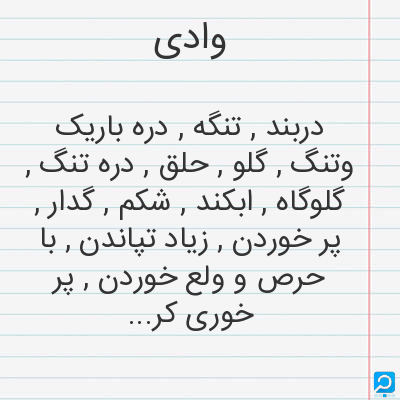 وادی
دربند , تنگه , دره باریک
وتنگ , گلو , حلق , دره تنگ ,
گلوگاه , ابکند , شکم , گدار ,
پر خوردن , زیاد تپاندن , با
حرص و ولع خوردن , پر
خوری کر...